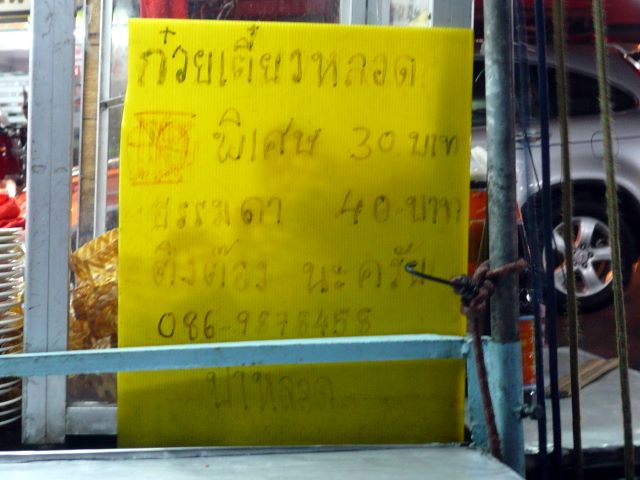 ก๋วยเตี๋ยวหลอด
พิเศษ 30 บาท
ธรรมดา 40 บาท
ติงต๊อง นะครับ
086-9878458